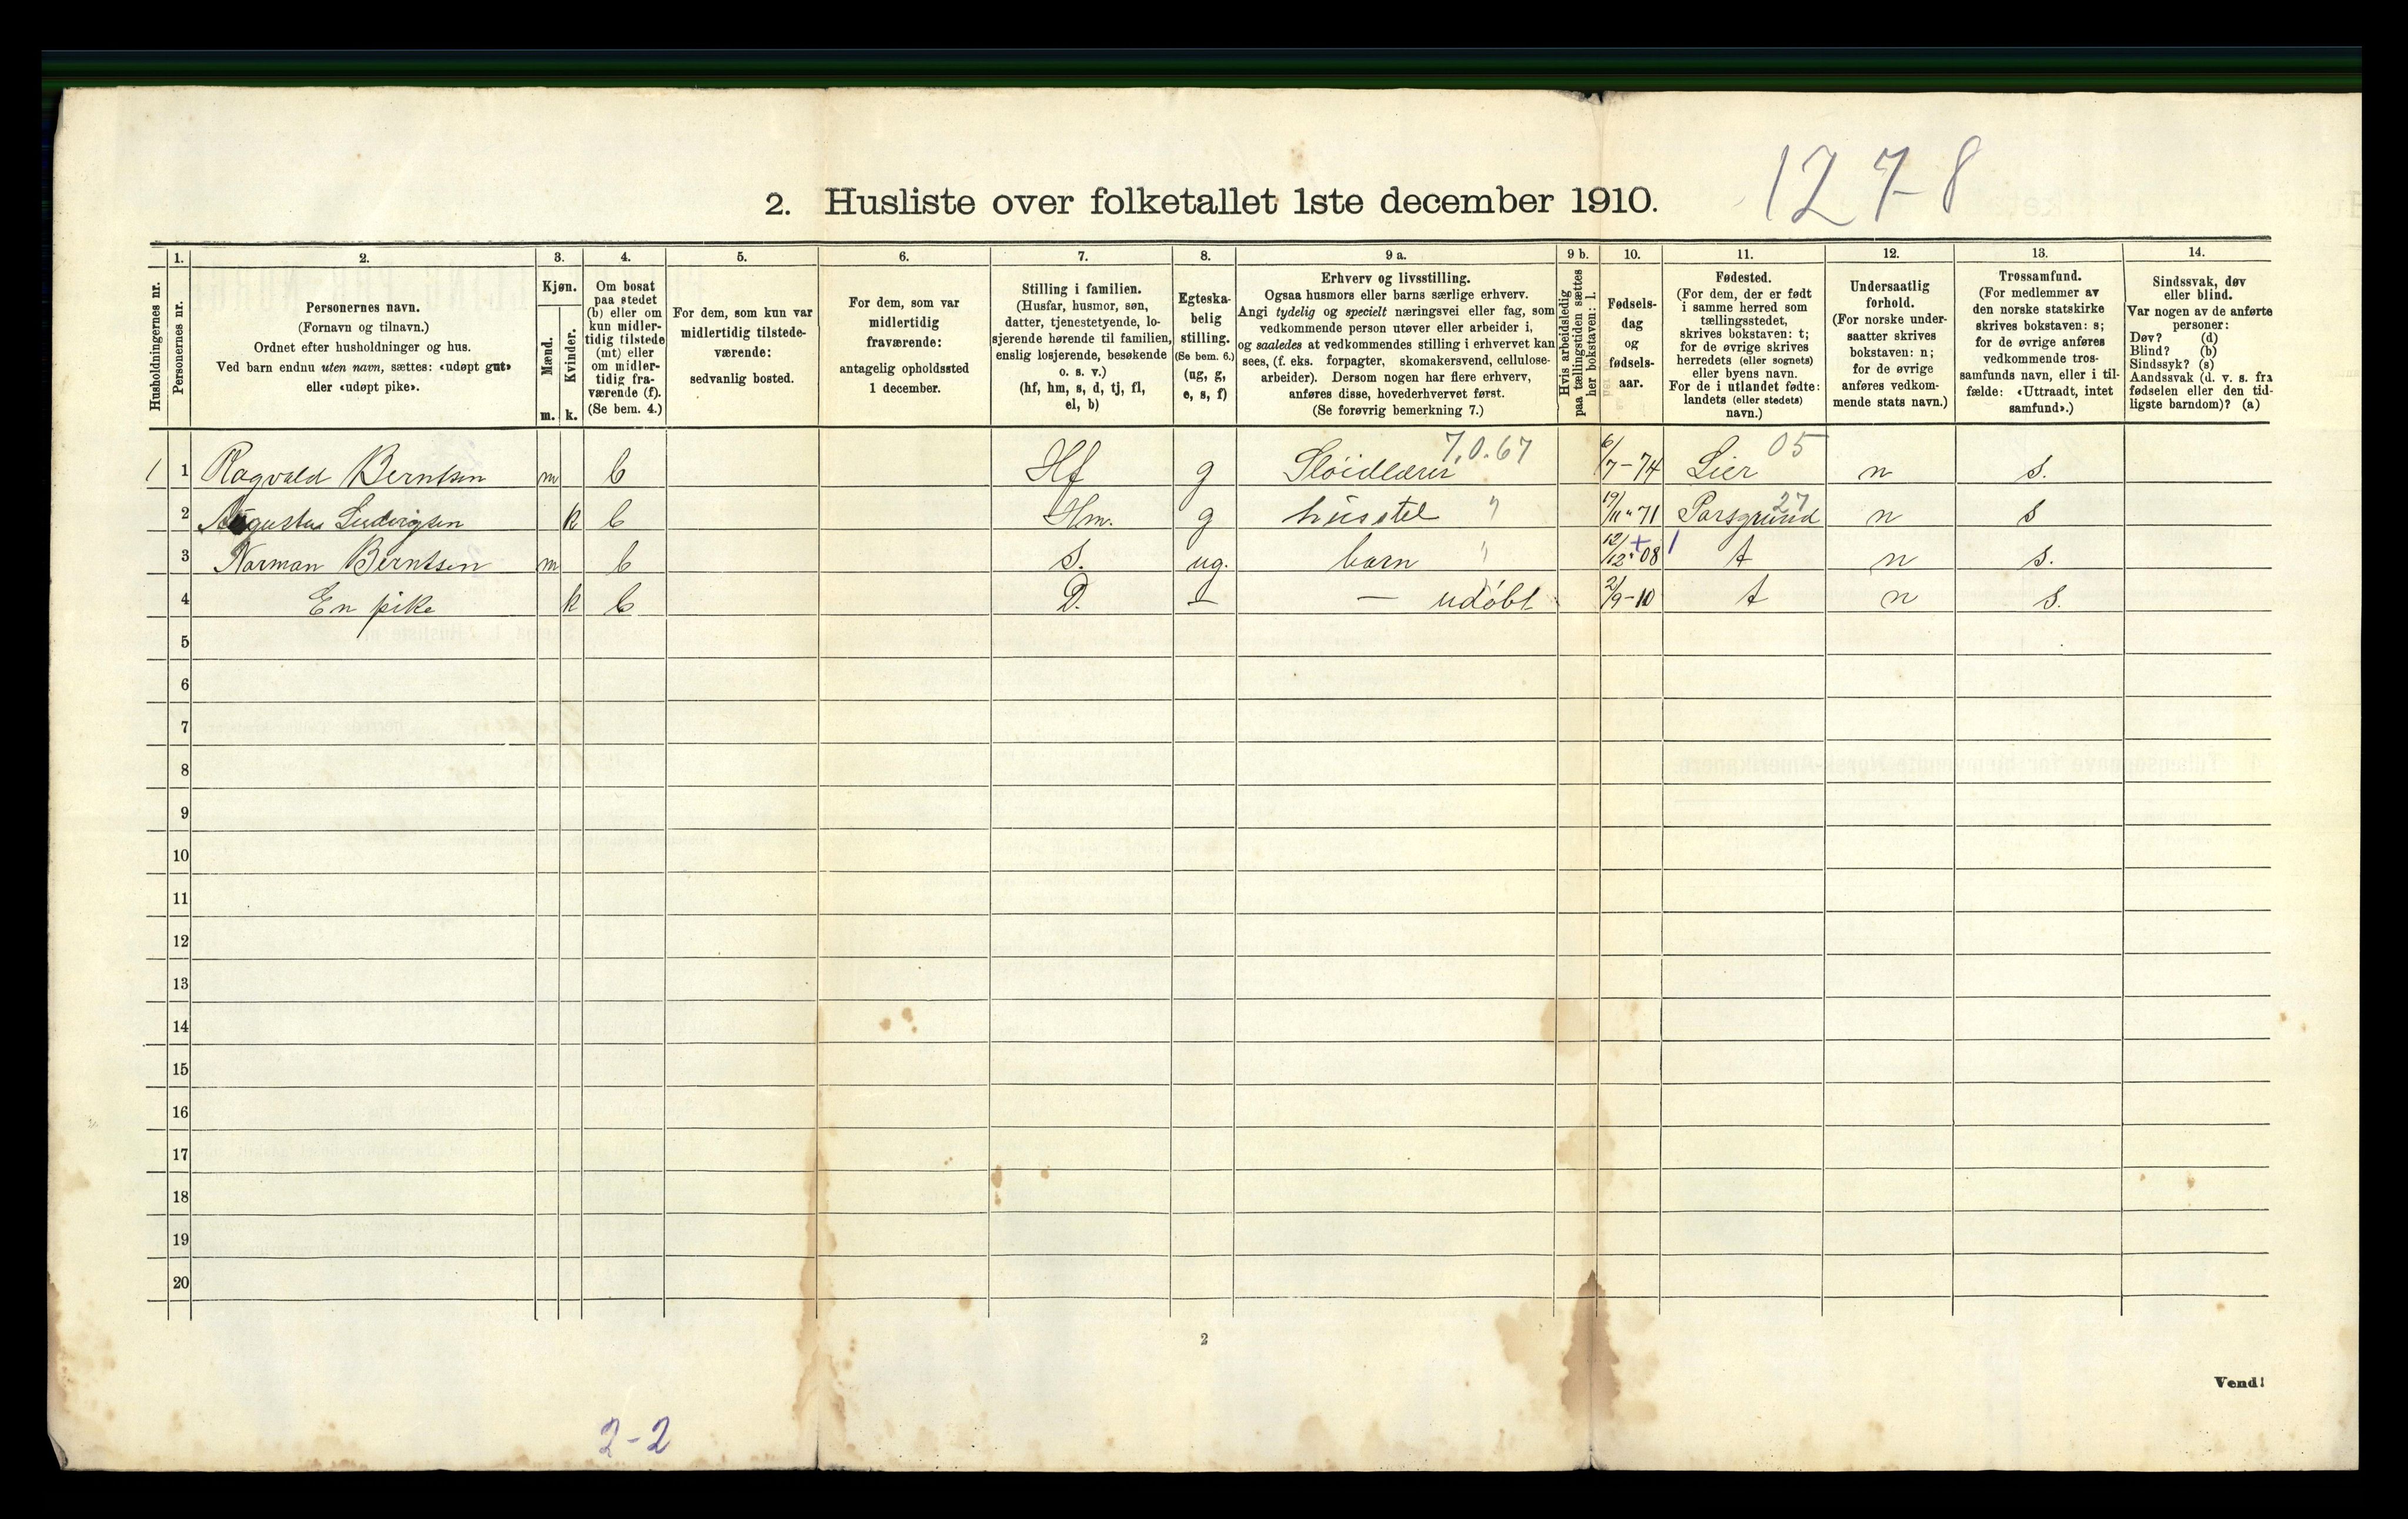 127-8
2. Husliste over folketallet 1ste december 1910.
1. 2. 3. 4. 5. 6. 7. 8. 9 a. 9 b. 10. 11. 12. 13. 14.
Husholdningernes nr.
Personernes nr.
Personernes navn.
(Fornavn og tilnavn.)
Ordnet efter husholdninger og hus.
Ved barn endnu uten navn, sættes: «udøpt gut»
eller «udøpt pike».
Kjøn.
Mænd.
m.
Kvinder.
k.
Om bosat
paa stedet
(b) eller om
kun midler-
tidig tilstede
(mt) eller
om midler-
tidig fra-
værende (f).
(Se bem. 4.)
For dem, som kun var
midlertidig tilstede-
værende:
sedvanlig bosted.
For dem, som var
midlertidig
fraværende:
antagelig opholdssted
1 december.
Stilling i familien.
(Husfar, husmor, søn,
datter, tjenestetyende, lo-
sjerende hørende til familien,
enslig losjerende, besøkende
o. s. v.)
(hf, hm, s, d, tj, fl,
el, b)
Egteska-
belig
stilling.
(Se bem. 6.)
(ug, g,
e, s, f)
Erhverv og livsstilling.
Ogsaa husmors eller barns særlige erhverv.
Angi tydelig og specielt næringsvei eller fag, som
vedkommende person utøver eller arbeider i,
og saaledes at vedkommendes stilling i erhvervet kan
sees, (f. eks. forpagter, skomakersvend, cellulose-
arbeider). Dersom nogen har flere erhverv,
anføres disse, hovederhvervet først.
(Se forøvrig bemerkning 7.)
Hvis arbeidsledig
paa tællingstiden sættes
her bokstaven: l.
Fødsels-
dag
og
fødsels-
aar.
Fødested.
(For dem, der er født
i samme herred som
tællingsstedet,
skrives bokstaven: t;
for de øvrige skrives
herredets (eller sognets)
eller byens navn.
For de i utlandet fødte:
landets (eller stedets)
navn.)
Undersaatlig
forhold.
(For norske under-
saatter skrives
bokstaven: n;
for de øvrige
anføres vedkom-
mende stats navn.)
Trossamfund.
(For medlemmer av
den norske statskirke
skrives bokstaven: s;
for de øvrige anføres
vedkommende tros-
samfunds navn, eller i til-
fælde: «Uttraadt, intet
samfund».)
Sindssvak, døv
eller blind.
Var nogen av de anførte
personer:
Døv? (d)
Blind? (b)
Sindssyk? (s)
Aandssvak (d. v. s. fra
fødselen eller den tid-
ligste barndom)? (a)
1 1 Ragvald Berntsen m b Hf g Slöidlærer 7.0.67 6/7-74 Lier 05 n s.
2 Augusta Ludvigsen k b Hm. g husstel " 19/11 " 71 Porsgrund 27 n s
3 Norman Berntsen m b s. ug. barn " 12/12 " 08 + 1 t n s.
4 En pike k b D. — — udöbt 2/9-10 t n s.
5
6
7
8
9
10
11
12
13
14
15
16
17
18
19
20
2
Vend!
2-2